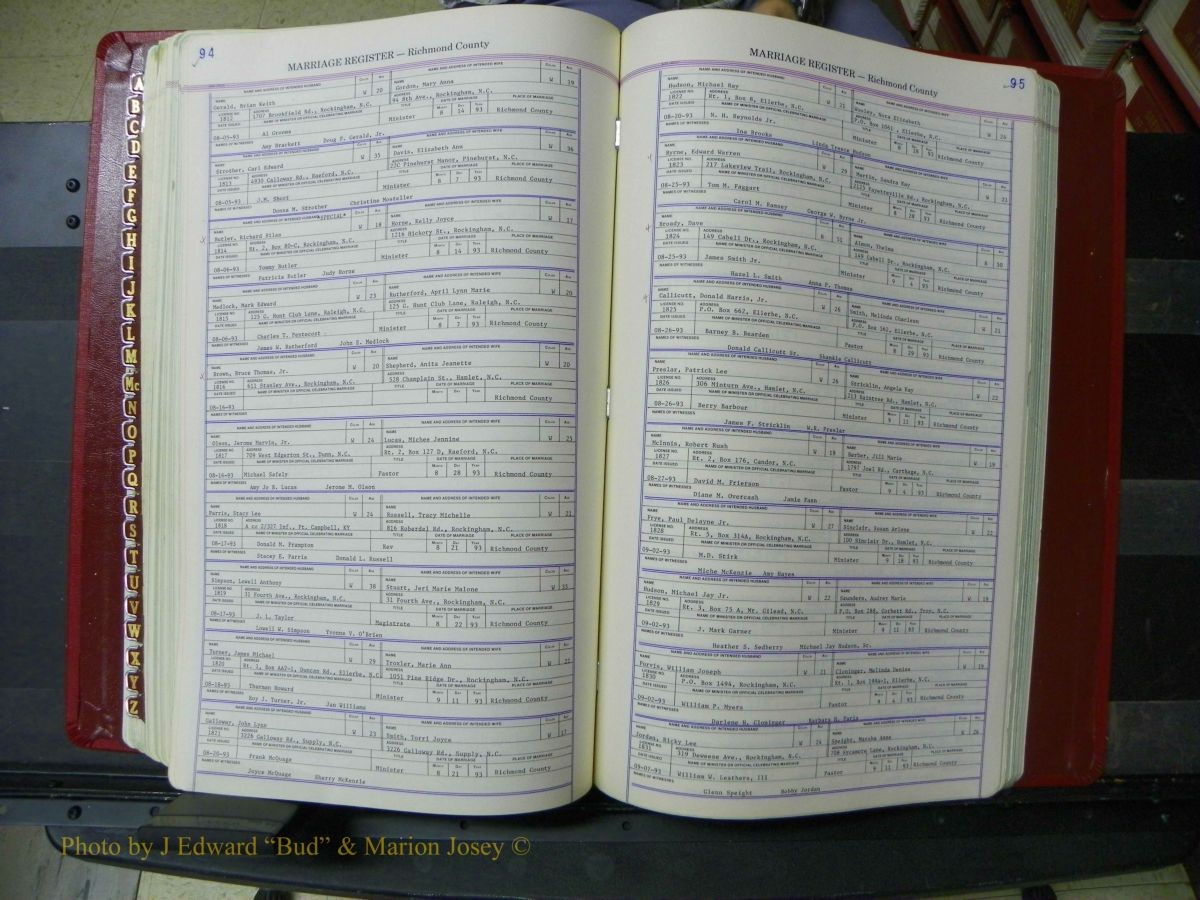 94
MARRIAGE REGISTER — Richmond County
NAME AND ADDRESS OF INTENDED HUSBAND NAME AND ADDRESS OF INTENDED WIFE
Gerald, Brian Keith W 20 Gordon, Mary Anna W 19
1812 1707 Brookfield Rd., Rockingham, N.C. 94 8th Ave., Rockingham, N.C.
08-05-93 Al Grooms Minister 8 14 93 Richmond County
Amy Brackett Doug P. Gerald, Jr.
Strother, Carl Edward W 35 Davis, Elizabeth Ann W 36
1813 4930 Calloway Rd., Raeford, N.C. 22C Pinehurst Manor, Pinehurst, N.C.
08-05-93 J.M. Short Minister 8 7 93 Richmond County
Donna M. Strother Christine Mosteller
Butler, Richard Silas W 18 Horne, Kelly Joyce W 17
1814 Rt. 2, Box 80-C, Rockingham, N.C. 1216 Hickory St., Rockingham, N.C.
08-06-93 Tommy Butler Minister 8 14 93 Richmond County
Patricia Butler Judy Horne
Medlock, Mark Edward W 23 Rutherford, April Lynn Marie W 20
1815 125 C. Hunt Club Lane, Raleigh, N.C. 125 C. Hunt Club Lane, Raleigh, N.C.
08-06-93 Charles T. Pentecost Minister 8 7 93 Richmond County
James W. Rutherford John E. Medlock
Brown, Bruce Thomas, Jr. W 20 Shepherd, Anita Jeanette W 20
1816 811 Stanley Ave., Rockingham, N.C. 528 Champlain St., Hamlet, N.C.
08-16-93 Richmond County
Olson, Jerome Marvin, Jr. W 24 Lucas, Michee Jennine W 25
1817 709 West Edgarton St., Dunn, N.C. Rt. 2, Box 127 D, Raeford, N.C.
08-16-93 Michael Safely Pastor 8 28 93 Richmond County
Amy Jo S. Lucas Jerome M. Olson
Parris, Stacy Lee W 24 Russell, Tracy Michelle W 21
1818 A co 2/327 Inf., Ft. Campbell, KY 816 Roberdel Rd., Rockingham, N.C.
08-17-93 Donald M. Frampton Rev 8 21 93 Richmond County
Stacey E. Parris Donald L. Russell
Simpson, Lowell Anthony W 38 Stuart, Jeri Marie Malone W 35
1819 31 Fourth Ave., Rockingham, N.C. 31 Fourth Ave., Rockingham, N.C.
08-17-93 J. L. Taylor Magistrate 8 22 93 Richmond County
Lowell W. Simpson Yvonne V. O'Brien
Turner, James Michael W 29 Troxler, Marie Ann W 22
1820 Rt. 1, Box AA2-1, Duncan Rd., Ellerbe, N.C. 1051 Pine Ridge Dr., Rockingham, N.C.
08-18-93 Thurman Howard Minister 9 11 93 Richmond County
Roy J. Turner, Jr. Jan Williams
Galloway, John Lynn W 23 Smith, Torri Joyce W 17
1821 3226 Galloway Rd., Supply, N.C. 3226 Galloway Rd., Supply, N.C.
08-20-93 Frank McQuage Minister 8 21 93 Richmond County
Joyce McQuage Sherry McKenzie
95
MARRIAGE REGISTER — Richmond County
NAME AND ADDRESS OF INTENDED HUSBAND NAME AND ADDRESS OF INTENDED WIFE
Hudson, Michael Ray W 21
1822 Rt. 1, Box 6, Ellerbe, N.C. P.O. Box 1061, Ellerbe, N.C.
08-20-93 N. H. Reynolds Jr. Minister 93 Richmond County
Ina Brooks Linda Trence Hudson
Byrne, Edward Warren W 29 Martin, Sandra Kay W 21
1823 217 Lakeview Trail, Rockingham, N.C. 2125 Fayetteville Rd., Rockingham, N.C.
08-25-93 Tom M. Faggart Minister 8 28 93 Richmond County
Carol M. Ramsey George W. Byrne Jr.
Broady, Dave B Almon, Thelma B 50
1824 149 Cabell Dr., Rockingham, N.C. 149 Cabell Dr., Rockingham, N.C.
08-25-93 James Smith Jr. Minister 9 4 93 Richmond County
Hazel L. Smith Anna P. Thomas
Callicutt, Donald Harris, Jr. W 26 Smith, Melinda Charleen W 21
1825 P.O. Box 662, Ellerbe, N.C. P.O. Box 562, Ellerbe, N.C.
08-26-93 Barney B. Bearden Minister 8 29 93 Richmond County
Donald Callicutt Sr. Shankle Callicutt
Preslar, Patrick Lee W 26 Stricklin, Angela Kay W 22
1826 306 Minturn Ave., Hamlet, N.C. 213 Raintree Rd., Hamlet, N.C.
08-26-93 Berry Barbour Minister 9 11 93 Richmond County
James F. Stricklin W.R. Presler
McInnis, Robert Rush W 19 Barber, Jill Marie W 19
1827 Rt. 2, Box 176, Candor, N.C. 1797 Joel Rd., Carthage, N.C.
08-27-93 David M. Frierson Pastor 9 4 93 Richmond County
Diane M. Overcash Jamie Fann
Frye, Paul Delayne Jr. W 27 Sinclair, Susan Arlene W 22
1828 Rt. 5, Box 314A, Rockingham, N.C. 100 Sinclair Dr., Hamlet, N.C.
09-02-93 M.D. Stirk Minister 9 18 93 Richmond County
Miche McKenzie Amy Hayes
Hudson, Michael Jay Jr. W 22 Saunders, Audrey Marie W 19
1829 Rt. 3, Box 75 A, Mt. Gilead, N.C. P.O. Box 288, Corbett Rd., Troy, N.C.
09-02-93 J. Mark Garner Minister 9 11 93 Richmond County
Heather S. Sedberry Michael Jay Hudson, Sr.
Purvis, William Joseph W 21 Cloninger, Melinda Denise W 19
1830 P.O. Box 1494, Rockingham, N.C. Rt. 1, Box 194A-1, Ellerbe, N.C.
09-02-93 William P. Myers Pastor 9 4 93 Richmond County
Darlene H. Cloninger Barbara H. Faria
Jordan, Ricky Lee W 24 Speight, Marsha Anne W 26
1831 319 Deweese Ave., Rockingham, N.C. 708 Sycamore Lane, Rockingham, N.C.
09-07-93 William W. Leathers, III Pastor 9 11 93 Richmond County
Glenn Speight Bobby Jordan
A
B
C
D
E
F
G
H
I
J
K
L
M
Mc
N
O
P
Q
R
S
T
U
V
W
X
Y
Z
Photo by J Edward “Bud” & Marion Josey ©